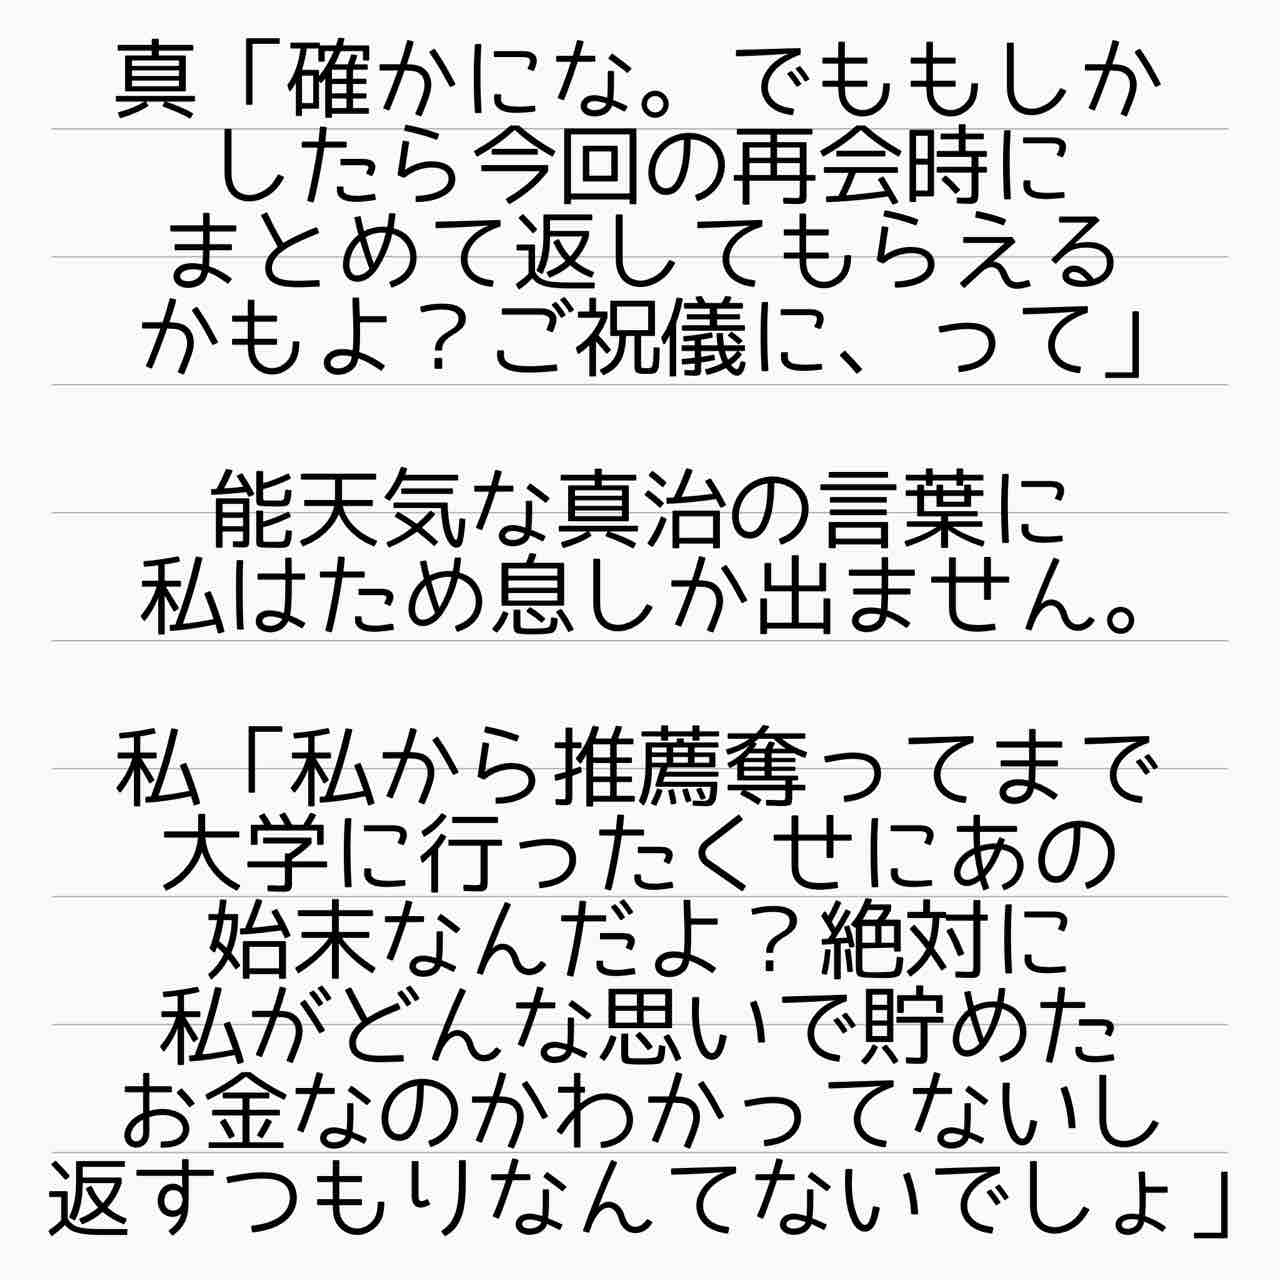 真「確かにな。でももしか
したら今回の再会時に
まとめて返してもらえる
かもよ？ご祝儀に、って」
能天気な真治の言葉に
私はため息しか出ません。
私「私から推薦奪ってまで
大学に行ったくせにあの
始末なんだよ？絶対に
私がどんな思いで貯めた
お金なのかわかってないし
返すつもりなんてないでしょ」